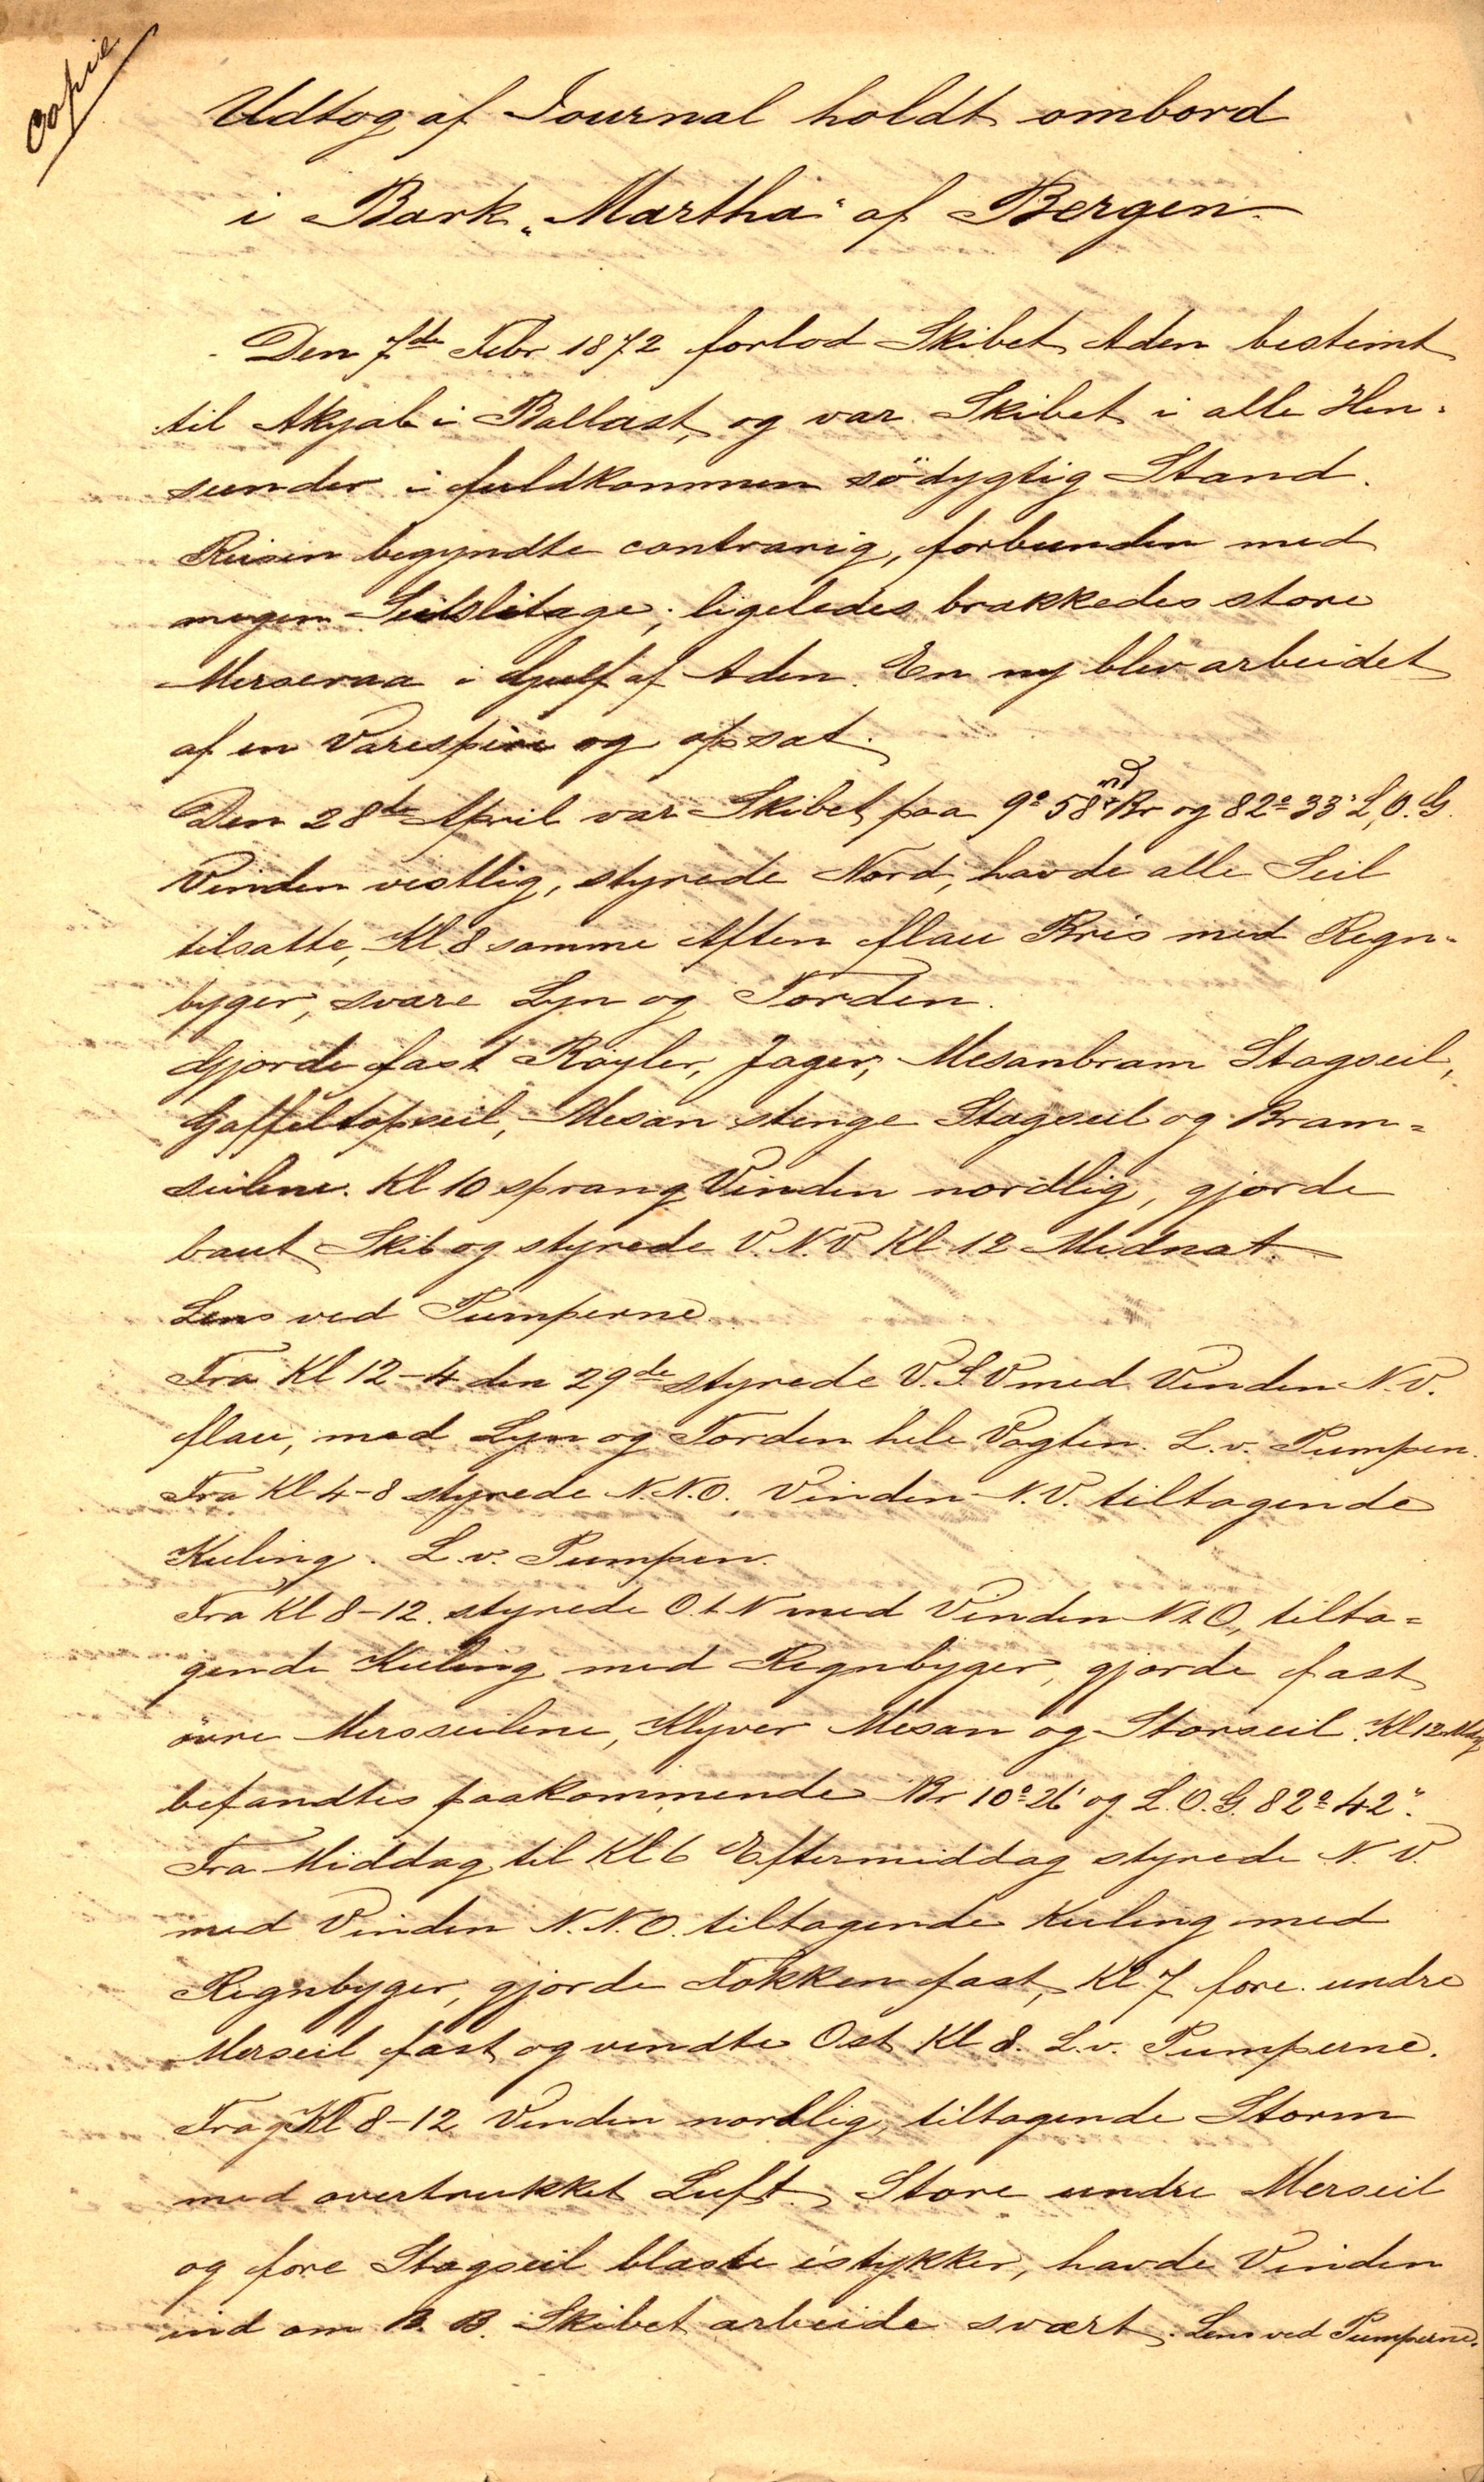 Copie
Udtog af Journal holdt ombord
i Bark „Martha“ af Bergen.
Den 7de Febr 1872 forlod Skibet Aden bestemt
til Akyab i Ballast, og var Skibet i alle Hen-
seender i fuldkommen södygtig Stand.
Reisen begyndte contrarig, forbunden med
megen Seilslitage; ligeledes brækkedes store
Merseraa i Gulf af Aden. En ny blev arbeidet
af en Varespire og opsat.
Den 28de April var Skibet paa 9° 58' nd Br og 82° 33' L. O. G.
Vinden vestlig, styrede Nord, havde alle Seil
tilsatte, Kl 8 samme Aften flau Bris med Regn-
byger, svare Lyn og Torden.
Gjorde fast Røyler, Jager, Mesanbram Stagseil,
Gaffeltopseil, Mesan stenge Stagseil og Bram=
seilene. Kl 10 sprang Vinden nordlig, gjorde
baut Skib og styrede V. N. V Kl 12 Midnat.
Lens ved Pumperne
Fra Kl 12-4 den 29de styrede V. S. V med Vinden N. V.
flau, med Lyn og Torden hele Vagten. L. v. Pumpen.
Fra Kl 4-8 styrede N. N. O. Vinden N. V. tiltagende
Kuling. L. v. Pumpen.
Fra Kl 8-12. styrede O. t. N med Vinden N t. O., tilta=
gende Kuling med Regnbyger, gjorde fast
øvre Merseilene, Klyver Mesan og Storseil. Kl 12 Mdg
befandtes paakommende N Br 10° 26' og L. O. G. 82° 42".
Fra Middag til Kl 6 Eftermiddag styrede N. V.
med Vinden N. N. O. tiltagende Kuling med
Regnbyger, gjorde Fokken fast, Kl. 7 fore. undre
Merseil fast og vendte Ost Kl 8. L. v. Pumperne.
Fra Kl 8-12 Vinden nordlig, tiltagende Storm
med overtrukket Luft. Store undre Merseil
og fore Stagseil blæste istykker, havde Vinden
ind om B. B. Skibet arbeide svært. Lens ved Pumperne.